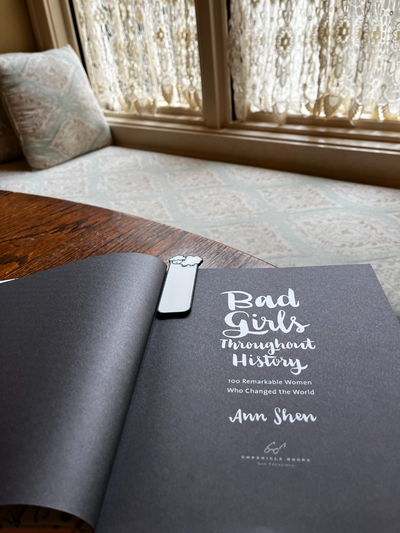 Bad
Girls
Throughout
History
100 Remarkable Women
Who Changed the World
Ann Shen
CHRONICLE BOOKS
SAN FRANCISCO